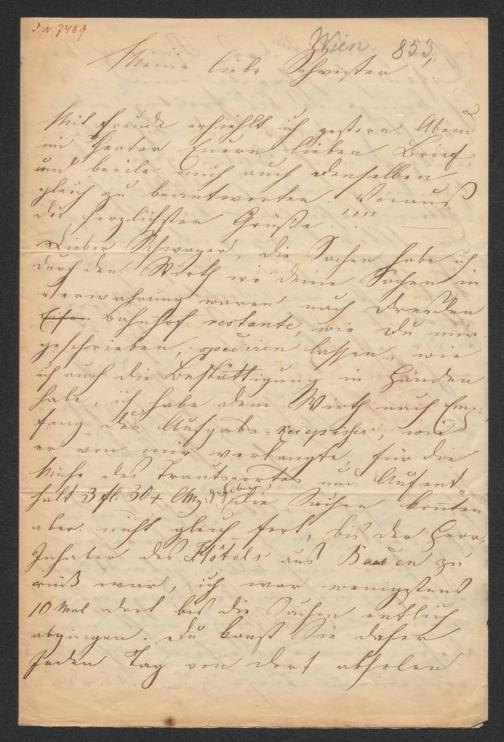 J.N. 7489
Wien. 853.
Meine liebe Schwester!
Mit Freude erhiehlt ich gestern Abend
im Theater Euern lieben Brief
und beeile mich auch denselben
gleich zu beantworten. Voraus
die herzlichsten Grüße!!!!
Lieber Schwager, die Sachen habe ich
durch den Wirth wo deine Sachen in
Verwahrung waren nach Dresden
Bahnhof restante, wie Du mir
geschrieben, spediren lassen, wie
ich auch die Bestättigung in Händen
habe, ich habe dem Wirth nach Emp¬
fang des Aufgabs recepisse, wie
er von mir verlangte, für die
Mühe des Transportes und Aufent
halt 3 fl. 30 die Sachen konnten
aber nicht gleich fort, bis der Herr
Inhaber des Hôtels aus Baden zu
rück war, ich war wenigstens
10 Mal dort bis die Sachen entlich
abgingen. Du kanst Sie daher
jeden Tag von dort abholen